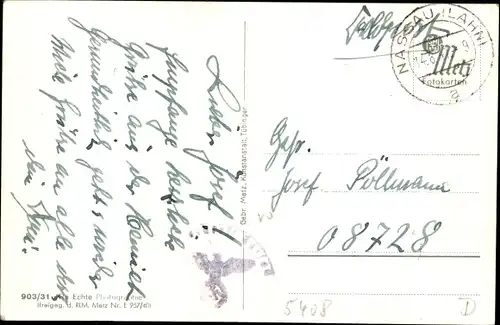 Lieber Josef!
Empfange herzliche
Grüße aus der Heimat
Gesundheitlich geht's wieder
Viele Grüße an alle
dein
903/31 Echte Photographie
(Freigeg. d. RLM. Metz Nr. E 957/40)
Gebr. Metz, Kunstanstalt, Tübingen
Feldpost
NASSAU (LAHN)
a
Metz
Fotokarten
Gefr.
Josef Pöllmann
08728
5408
D